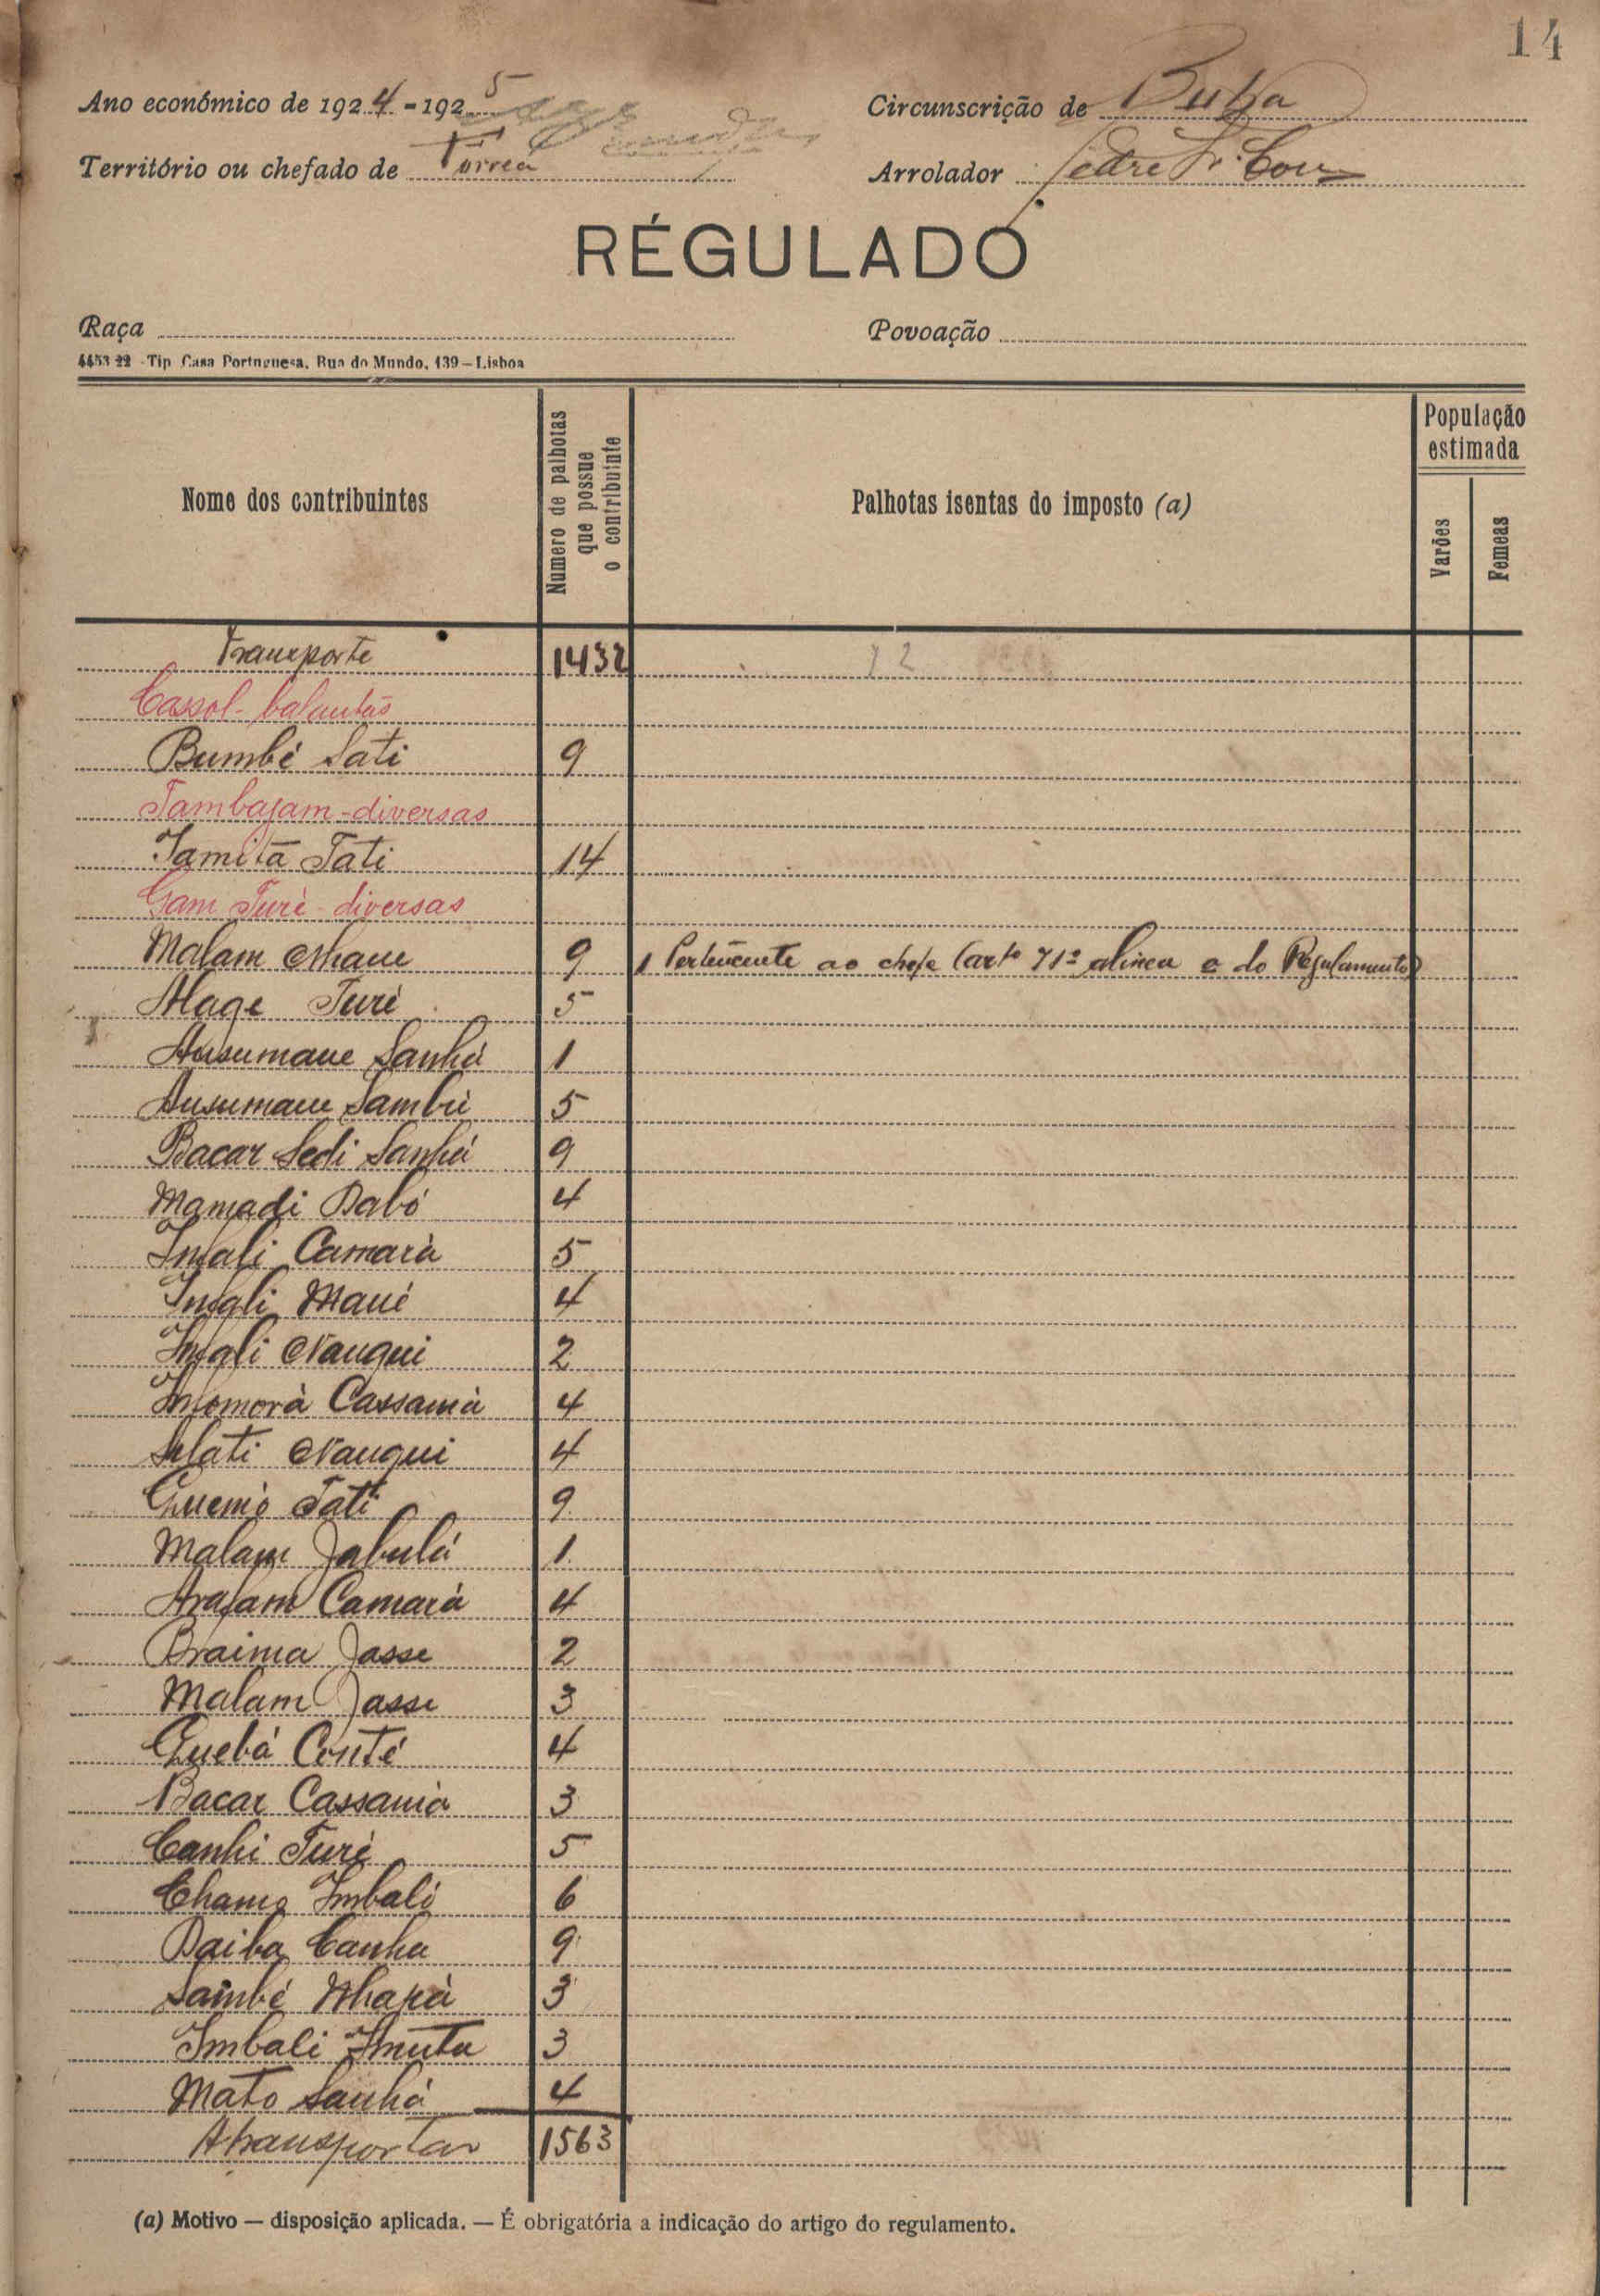 14
Ano económico de 1924-1925
Circunscrição de Buba
Território ou chefado de Forreá
Arrolador Pedro
RÉGULADO
Raça
Povoação
4453 22 - Tip. Casa Portuguesa, Rua do Mundo, 139 – Lisboa
Nome dos contribuintes
Numero de palhotas que possue o contribuinte
Palhotas isentas do imposto (a)
População estimada
Varões
Femeas
Transporte 1432 12
Cassol - balantas
Bumbé Sati 9
Tambajam - diversas
Tamità Tati 14
Gam Turé - diversas
Malam Mane 9 1 Pertencente ao chefe (artº 71º alinea c do Regulamento)
Alage Turé 5
Ansumane Sanhá 1
Ansumane Sambú 5
Bacar Sedi Sanhá 9
Mamadi Dabó 4
Infali Camarà 5
Infali Mané 4
Infali Nanqui 2
Infomorà Cassamà 4
Sulati Nanqui 4
Quemò Tati 9
Malam Jabulá 1
Arafam Camarà 4
Braima Jasse 2
Malam Jasse 3
Quebá Conté 4
Bacar Cassamà 3
Canhi Turé 5
Chamo Imbali 6
Daiba Canha 9
Sambé 3
Imbali Imuta 3
Mato Sanhá 4
A transportar 1563
(a) Motivo — disposição aplicada. — É obrigatória a indicação do artigo do regulamento.